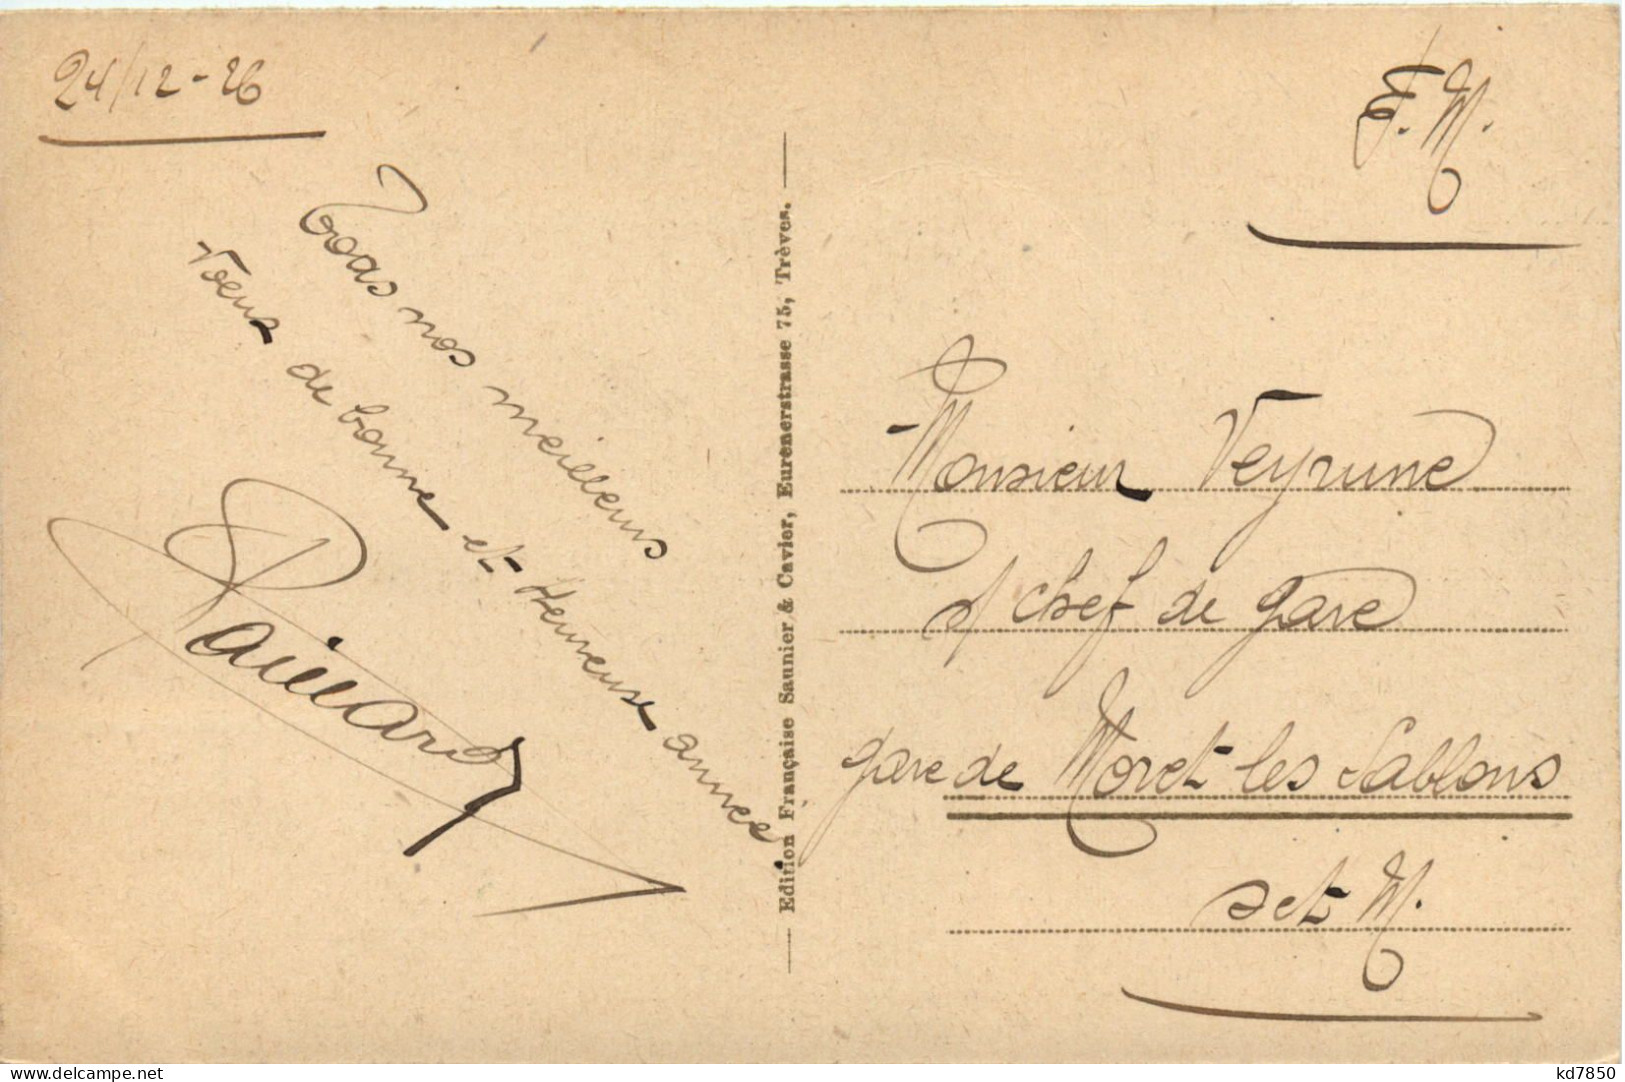 24/12-26
Tous nos meilleurs
voeux de bonne et Heureuse année.
Paillard
Edition Française Saunier & Cavier, Eurenerstrasse 75, Trèves.
F. M.
Monsieur Veyrune
s/ chef de gare
gare de Moret les Sablons
S et M.
delcampe.net
kd7850